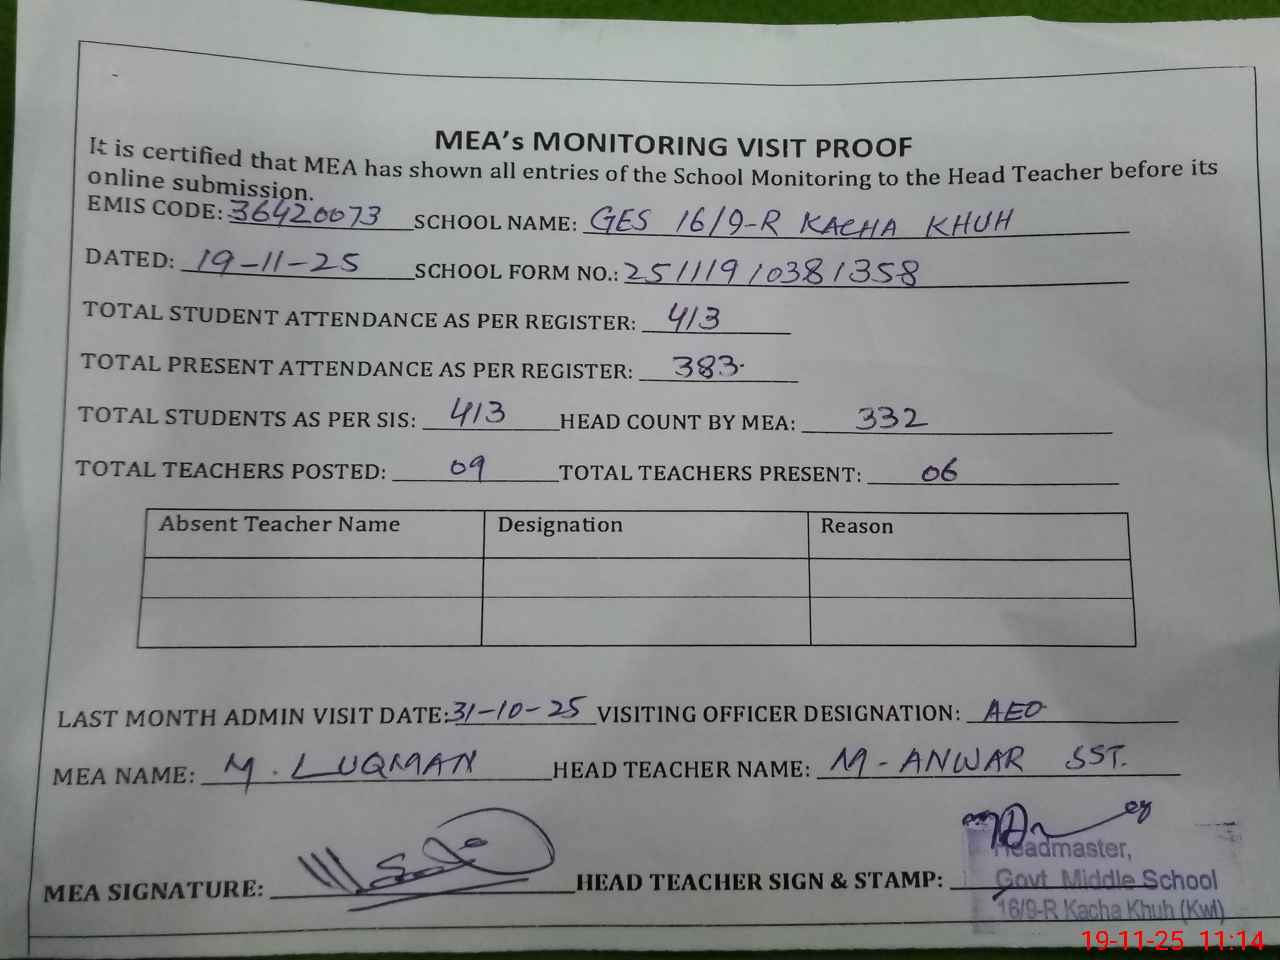 MEA's MONITORING VISIT PROOF
It is certified that MEA has shown all entries of the School Monitoring to the Head Teacher before its
online submission.
EMIS CODE: 36420073 SCHOOL NAME: GES 16/9-R KACHA KHUH
DATED: 19-11-25 SCHOOL FORM NO.: 25111910381358
TOTAL STUDENT ATTENDANCE AS PER REGISTER: 413
TOTAL PRESENT ATTENDANCE AS PER REGISTER: 383
TOTAL STUDENTS AS PER SIS: 413 HEAD COUNT BY MEA: 332
TOTAL TEACHERS POSTED: 09 TOTAL TEACHERS PRESENT: 06
Absent Teacher Name Designation Reason
LAST MONTH ADMIN VISIT DATE: 31-10-25 VISITING OFFICER DESIGNATION: AEO
MEA NAME: M. LUQMAN HEAD TEACHER NAME: M-ANWAR SST.
MEA SIGNATURE: HEAD TEACHER SIGN & STAMP:
Headmaster,
Govt Middle School
16/9-R Kacha Khuh (Kwl)
19-11-25 11:14